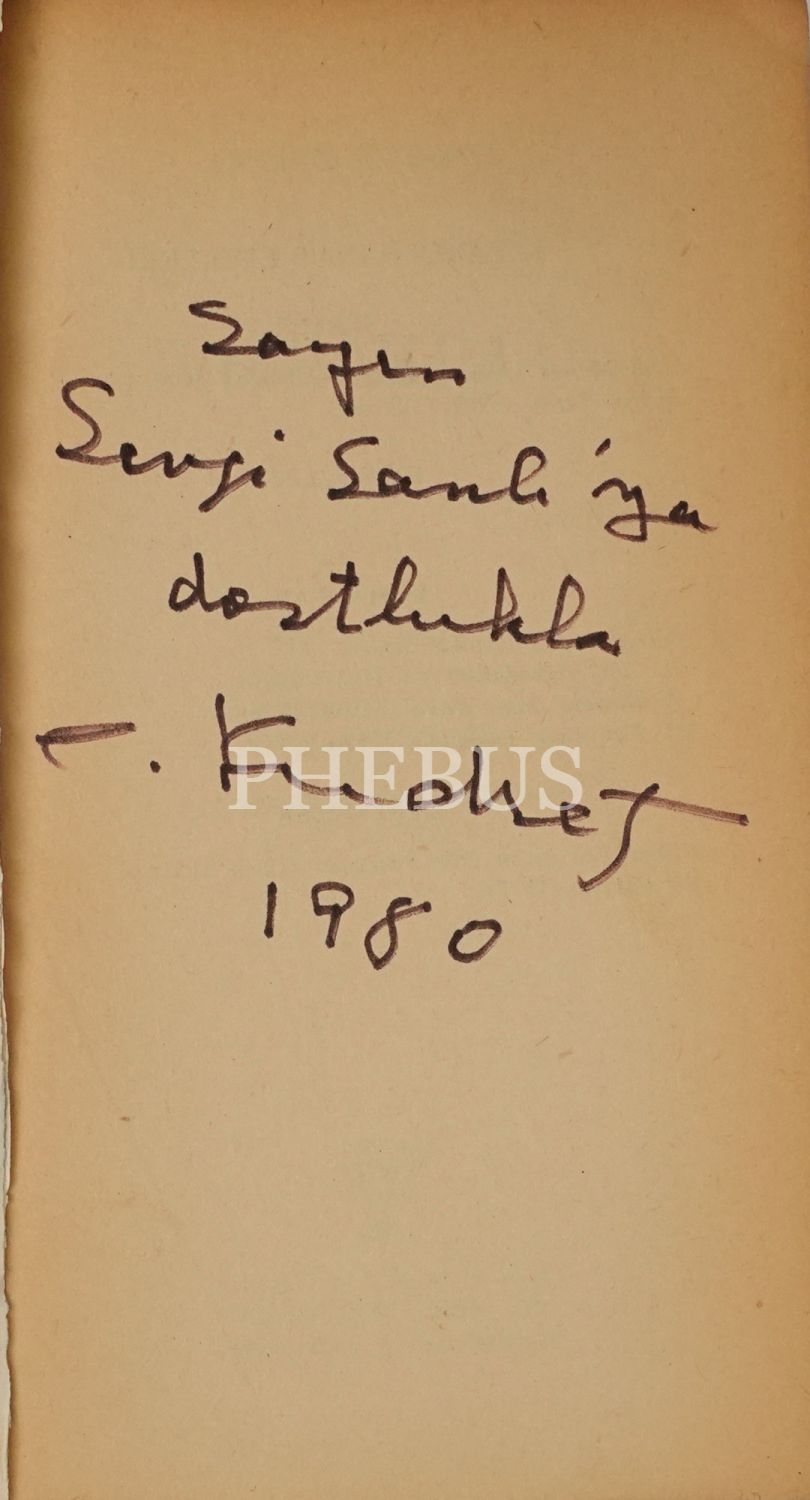 Sayın
Sevgi Sanlı'ya
dostlukla
C. Kudret
PHEBUS
1980